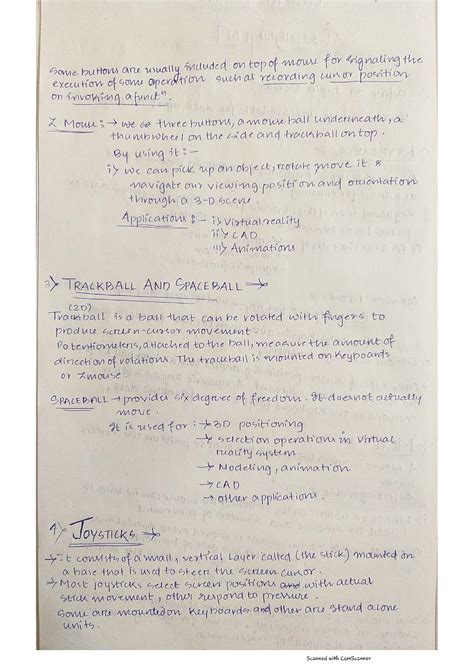 Some buttons are usually included on top of mouse for signaling the
execution of some operation such as recording cursor position
on invoking a functⁿ.
Z Mouse :→ we so three buttons, a mouse ball underneath, a
thumbwheel on the side and trackball on top.
By using it :-
i) we can pick up an object, rotate move it &
navigate our viewing position and orientation
through a 3-D scene.
Applications :- i) Virtual reality
ii) CAD
iii) Animations
3) TRACKBALL AND SPACEBALL →
(2D)
Trackball is a ball that can be rotated with fingers to
produce screen-cursor movement.
Potentiometers, attached to the ball, measure the amount of
direction of rotations. The traceball is mounted on Keyboards
or Zmouse.
SPACEBALL → provides six degree of freedom. It does not actually
move.
It is used for :→ 3D positioning
→ selection operations in virtual
reality system.
→ Modeling, animation
→ CAD
→ other applications.
4) JOYSTICKS →
→ It consists of a small, vertical layer called (the stick) mounted on
a base that is used to steer the screen cursor.
→ Most joysticks select screen positions with actual
stick movement, other respond to pressure.
Some are mounted on Keyboards and other are stand alone
units.
Scanned with CamScanner